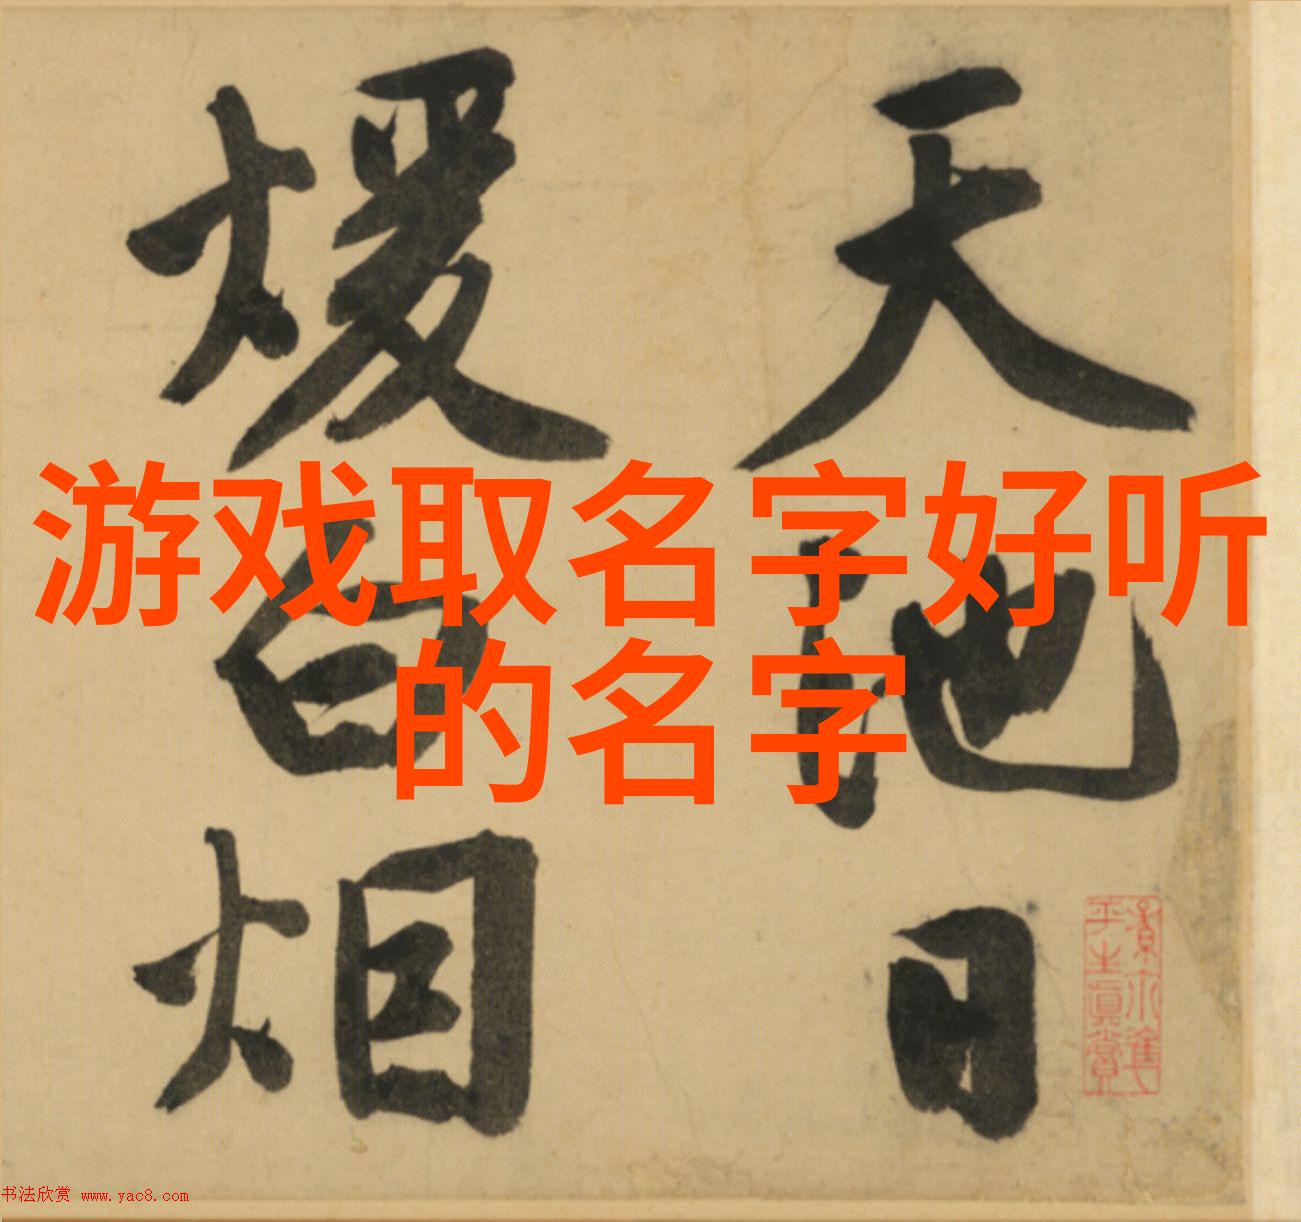 游戏取名字好听
的名字
天池日
煖白烟
平生真賞
书法欣赏 www.yac8.com